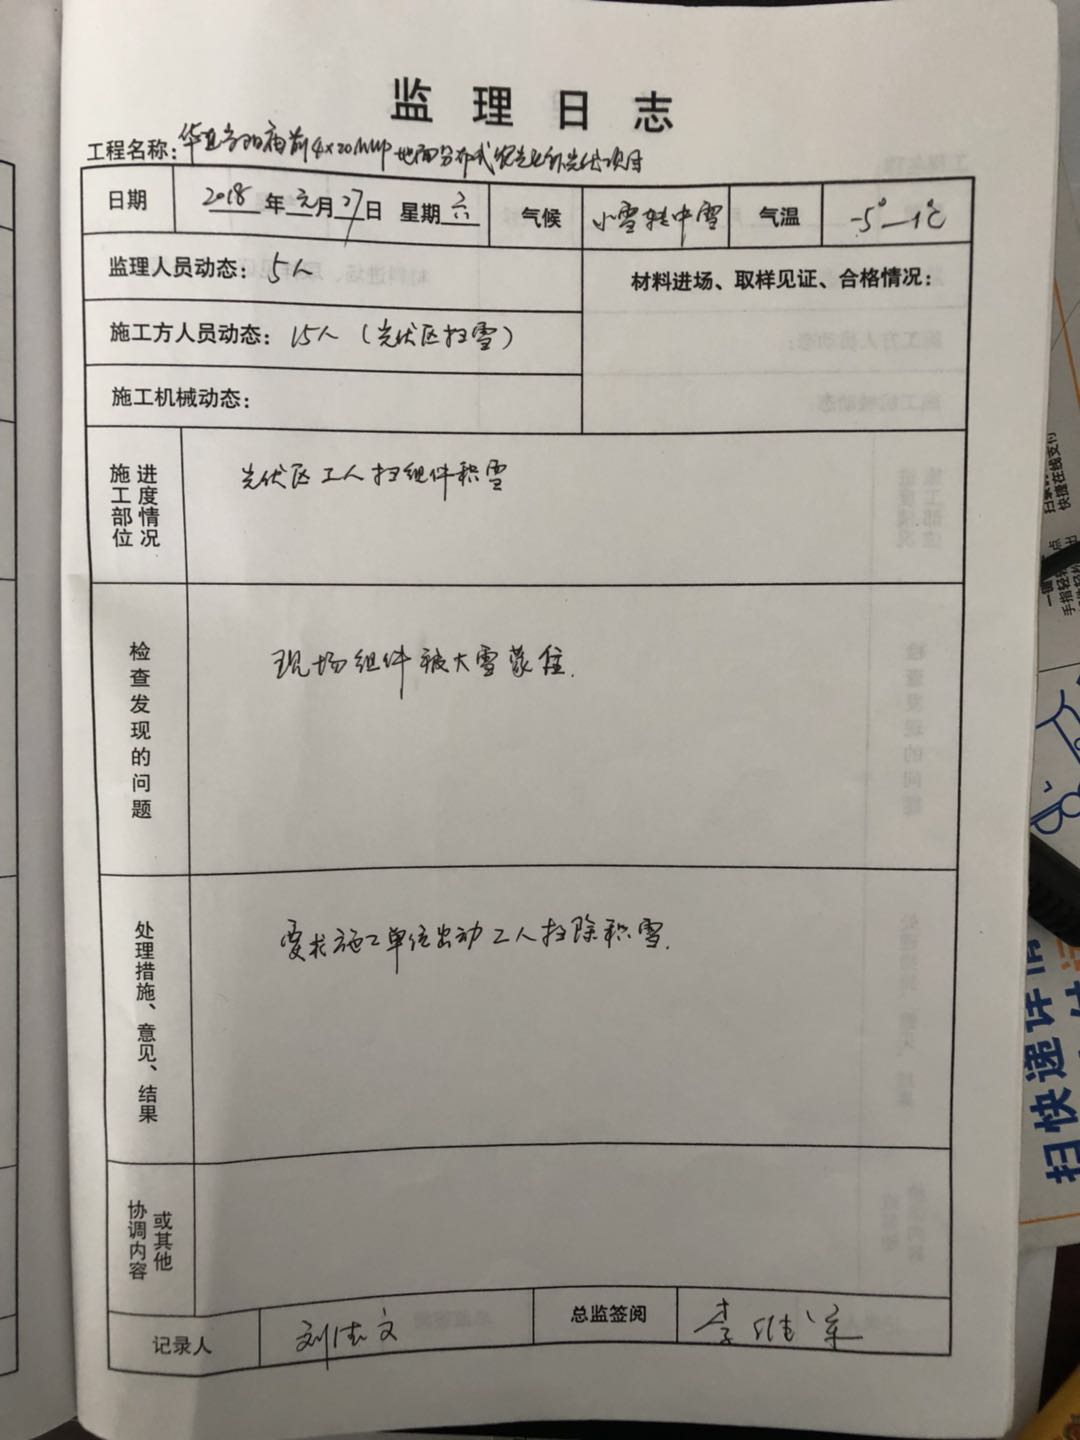 监理日志
工程名称：华 4×20MWP地面分布式 光伏项目
日期 2018年元月27日 星期六 气候 小雪转中雪 气温 -5°—1℃
监理人员动态：5人
材料进场、取样见证、合格情况：
施工方人员动态：15人（光伏区扫雪）
施工机械动态：
施工部位进度情况 光伏区工人扫组件积雪
检查发现的问题 现场组件被大雪蒙住.
处理措施、意见、结果 要求施工单位出动工人扫除积雪.
协调内容或其他
记录人 刘 文 总监签阅 李 军
扫快递详情
快捷在线支付